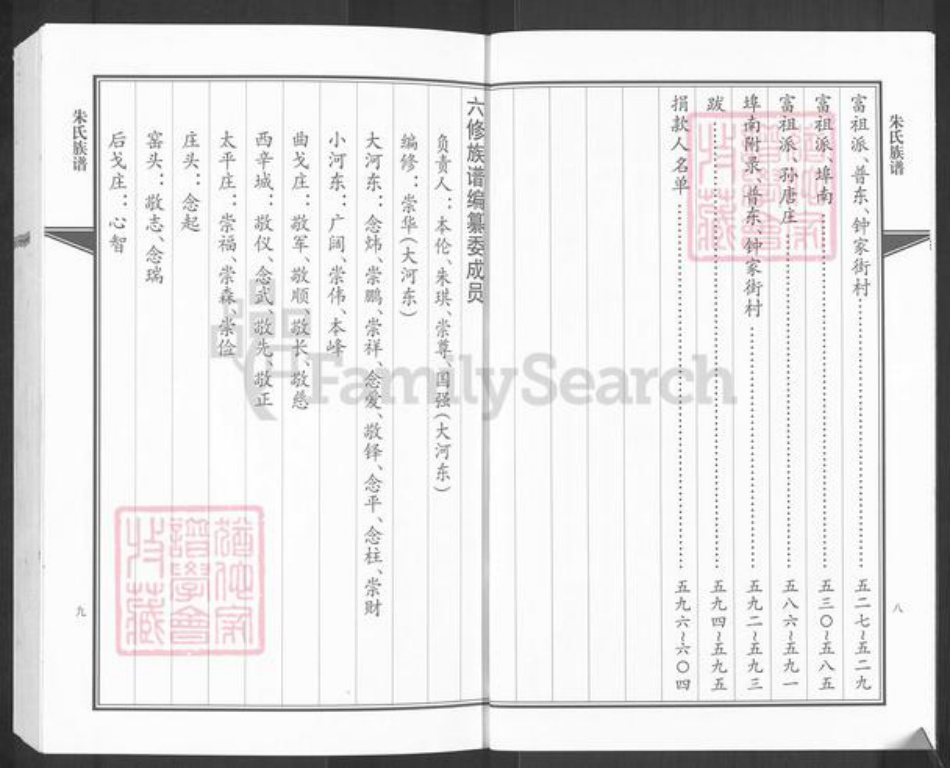 朱氏族谱
富祖派、普东、钟家街村……五二七~五二九
富祖派、埠南……五三〇~五八五
富祖派、孙唐庄……五八六~五九一
埠南附录、普东、钟家街村……五九二~五九三
跋……五九四~五九五
捐款人名单……五九六~六〇四
八
六修族谱编纂委成员
负责人：本伦、朱琪、崇尊、国强(大河东)
编修：崇华(大河东)
大河东：念炜、崇鹏、崇祥、念爱、敬铎、念平、念柱、崇财
小河东：广阔、崇伟、本峰
曲戈庄：敬军、敬顺、敬长、敬慈
西辛城：敬仪、念武、敬先、敬正
太平庄：崇福、崇森、崇俭
庄头：念起
窑头：敬志、念瑞
后戈庄：心智
朱氏族谱
九
FamilySearch
猶他家譜學會收藏
猶他家譜學會收藏